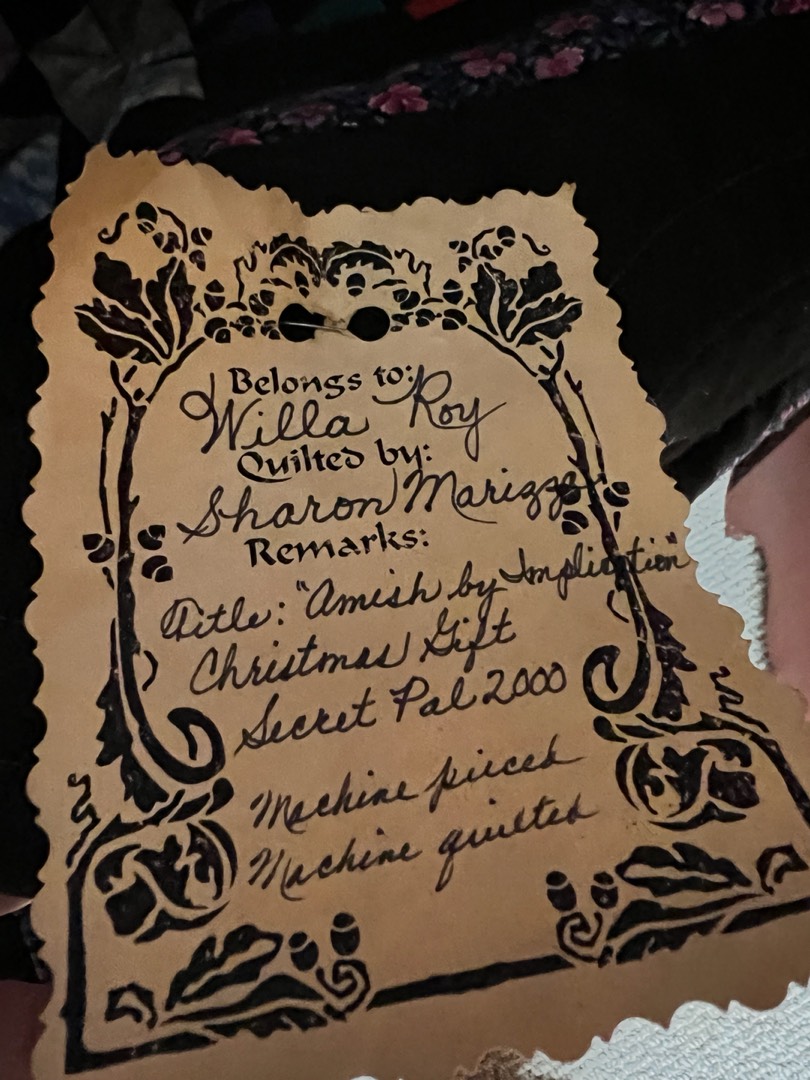 Belongs to:
Willa Roy
Quilted by:
Sharon
Remarks:
Title: "Amish by Implication"
Christmas Gift
Secret Pal 2000
Machine pieced
Machine quilted